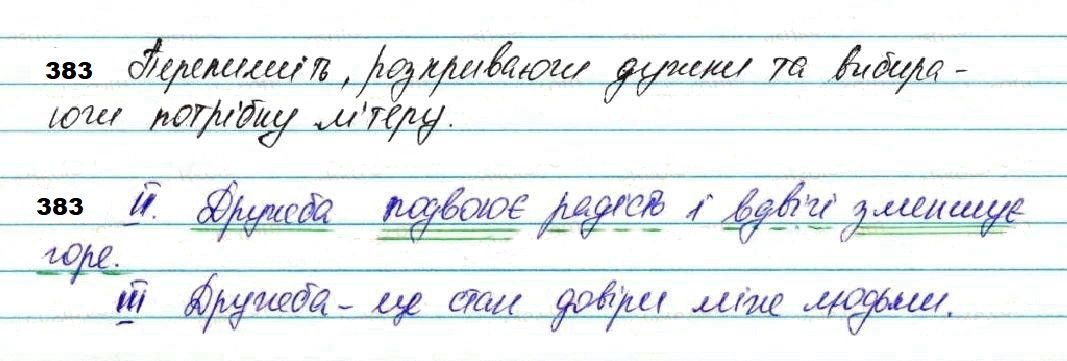 383 Перепишіть, розкриваючи дужки та вибира-
ючи потрібну літеру.
383 II. Дружба подвоює радість і вдвічі зменшує
горе.
III Дружба – це стан довіри між людьми.